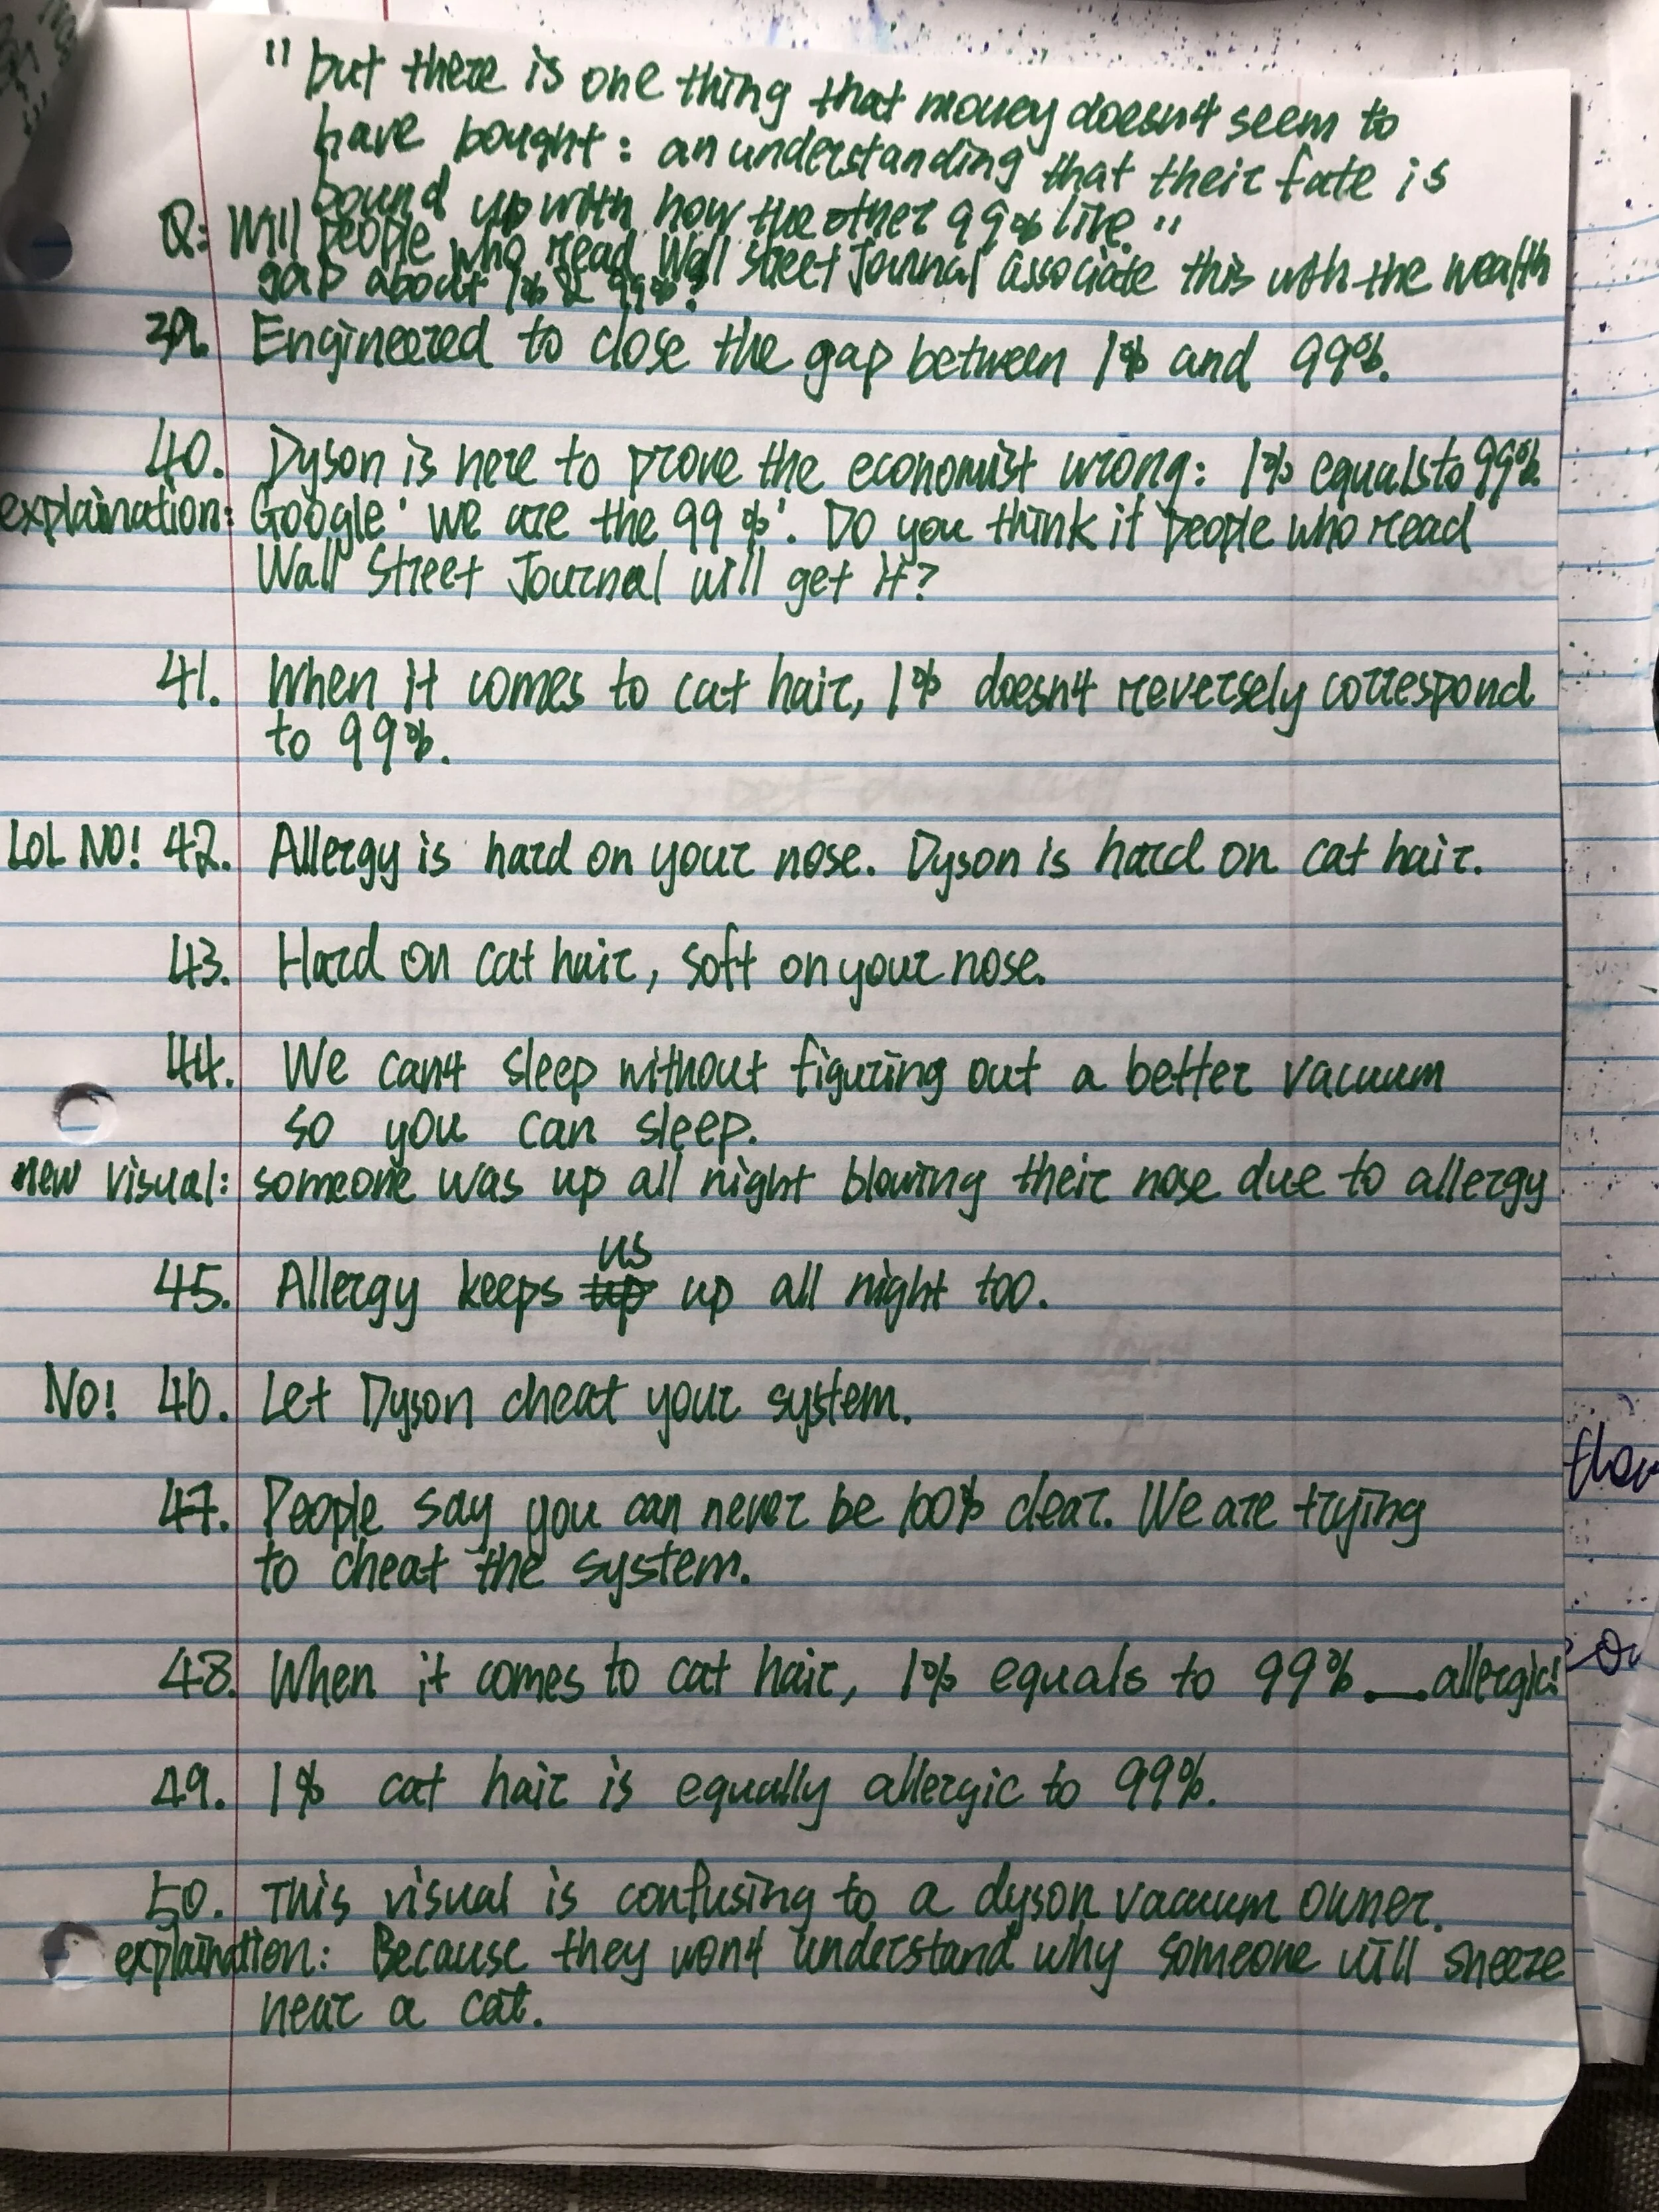 "but there is one thing that money doesn't seem to
have bought: an understanding that their fate is
bound up with how the other 99% live."
Q: Will people who read Wall Street Journal associate this with the wealth
gap about 1% & 99%?
39. Engineered to close the gap between 1% and 99%.
40. Dyson is here to prove the economist wrong: 1% equals to 99%
explaination: Google 'we are the 99%'. Do you think it people who read
Wall Street Journal will get it?
41. When it comes to cat hair, 1% doesn't reversely correspond
to 99%.
LOL NO! 42. Allergy is hard on your nose. Dyson is hard on cat hair.
43. Hard on cat hair, soft on your nose.
44. We can't sleep without figuring out a better vacuum
so you can sleep.
new visual: someone was up all night blowing their nose due to allergy
us
45. Allergy keeps up up all night too.
No! 46. Let Dyson cheat your system.
47. People say you can never be 100% clear. We are trying
to cheat the system.
48. When it comes to cat hair, 1% equals to 99%. __ allergic!
49. 1% cat hair is equally allergic to 99%.
50. This visual is confusing to a dyson vacuum owner.
explaination: Because they won't understand why someone will sneeze
near a cat.